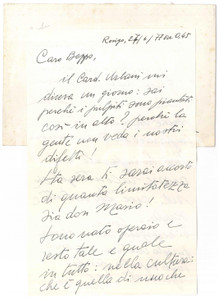 27/6/77 ore 0,45
Caro Beppo,
il Card. Urbani mi
diceva un giorno: sai
perché i pulpiti sono piantati
così in alto? perché la
gente non veda i nostri
difetti!
Sta sera ti sarai accorto
di quanta limitatezza
sia don Mario!
Sono nato operaio e
resto tale e quale
in tutto: nella cultura
che è quella di uno che